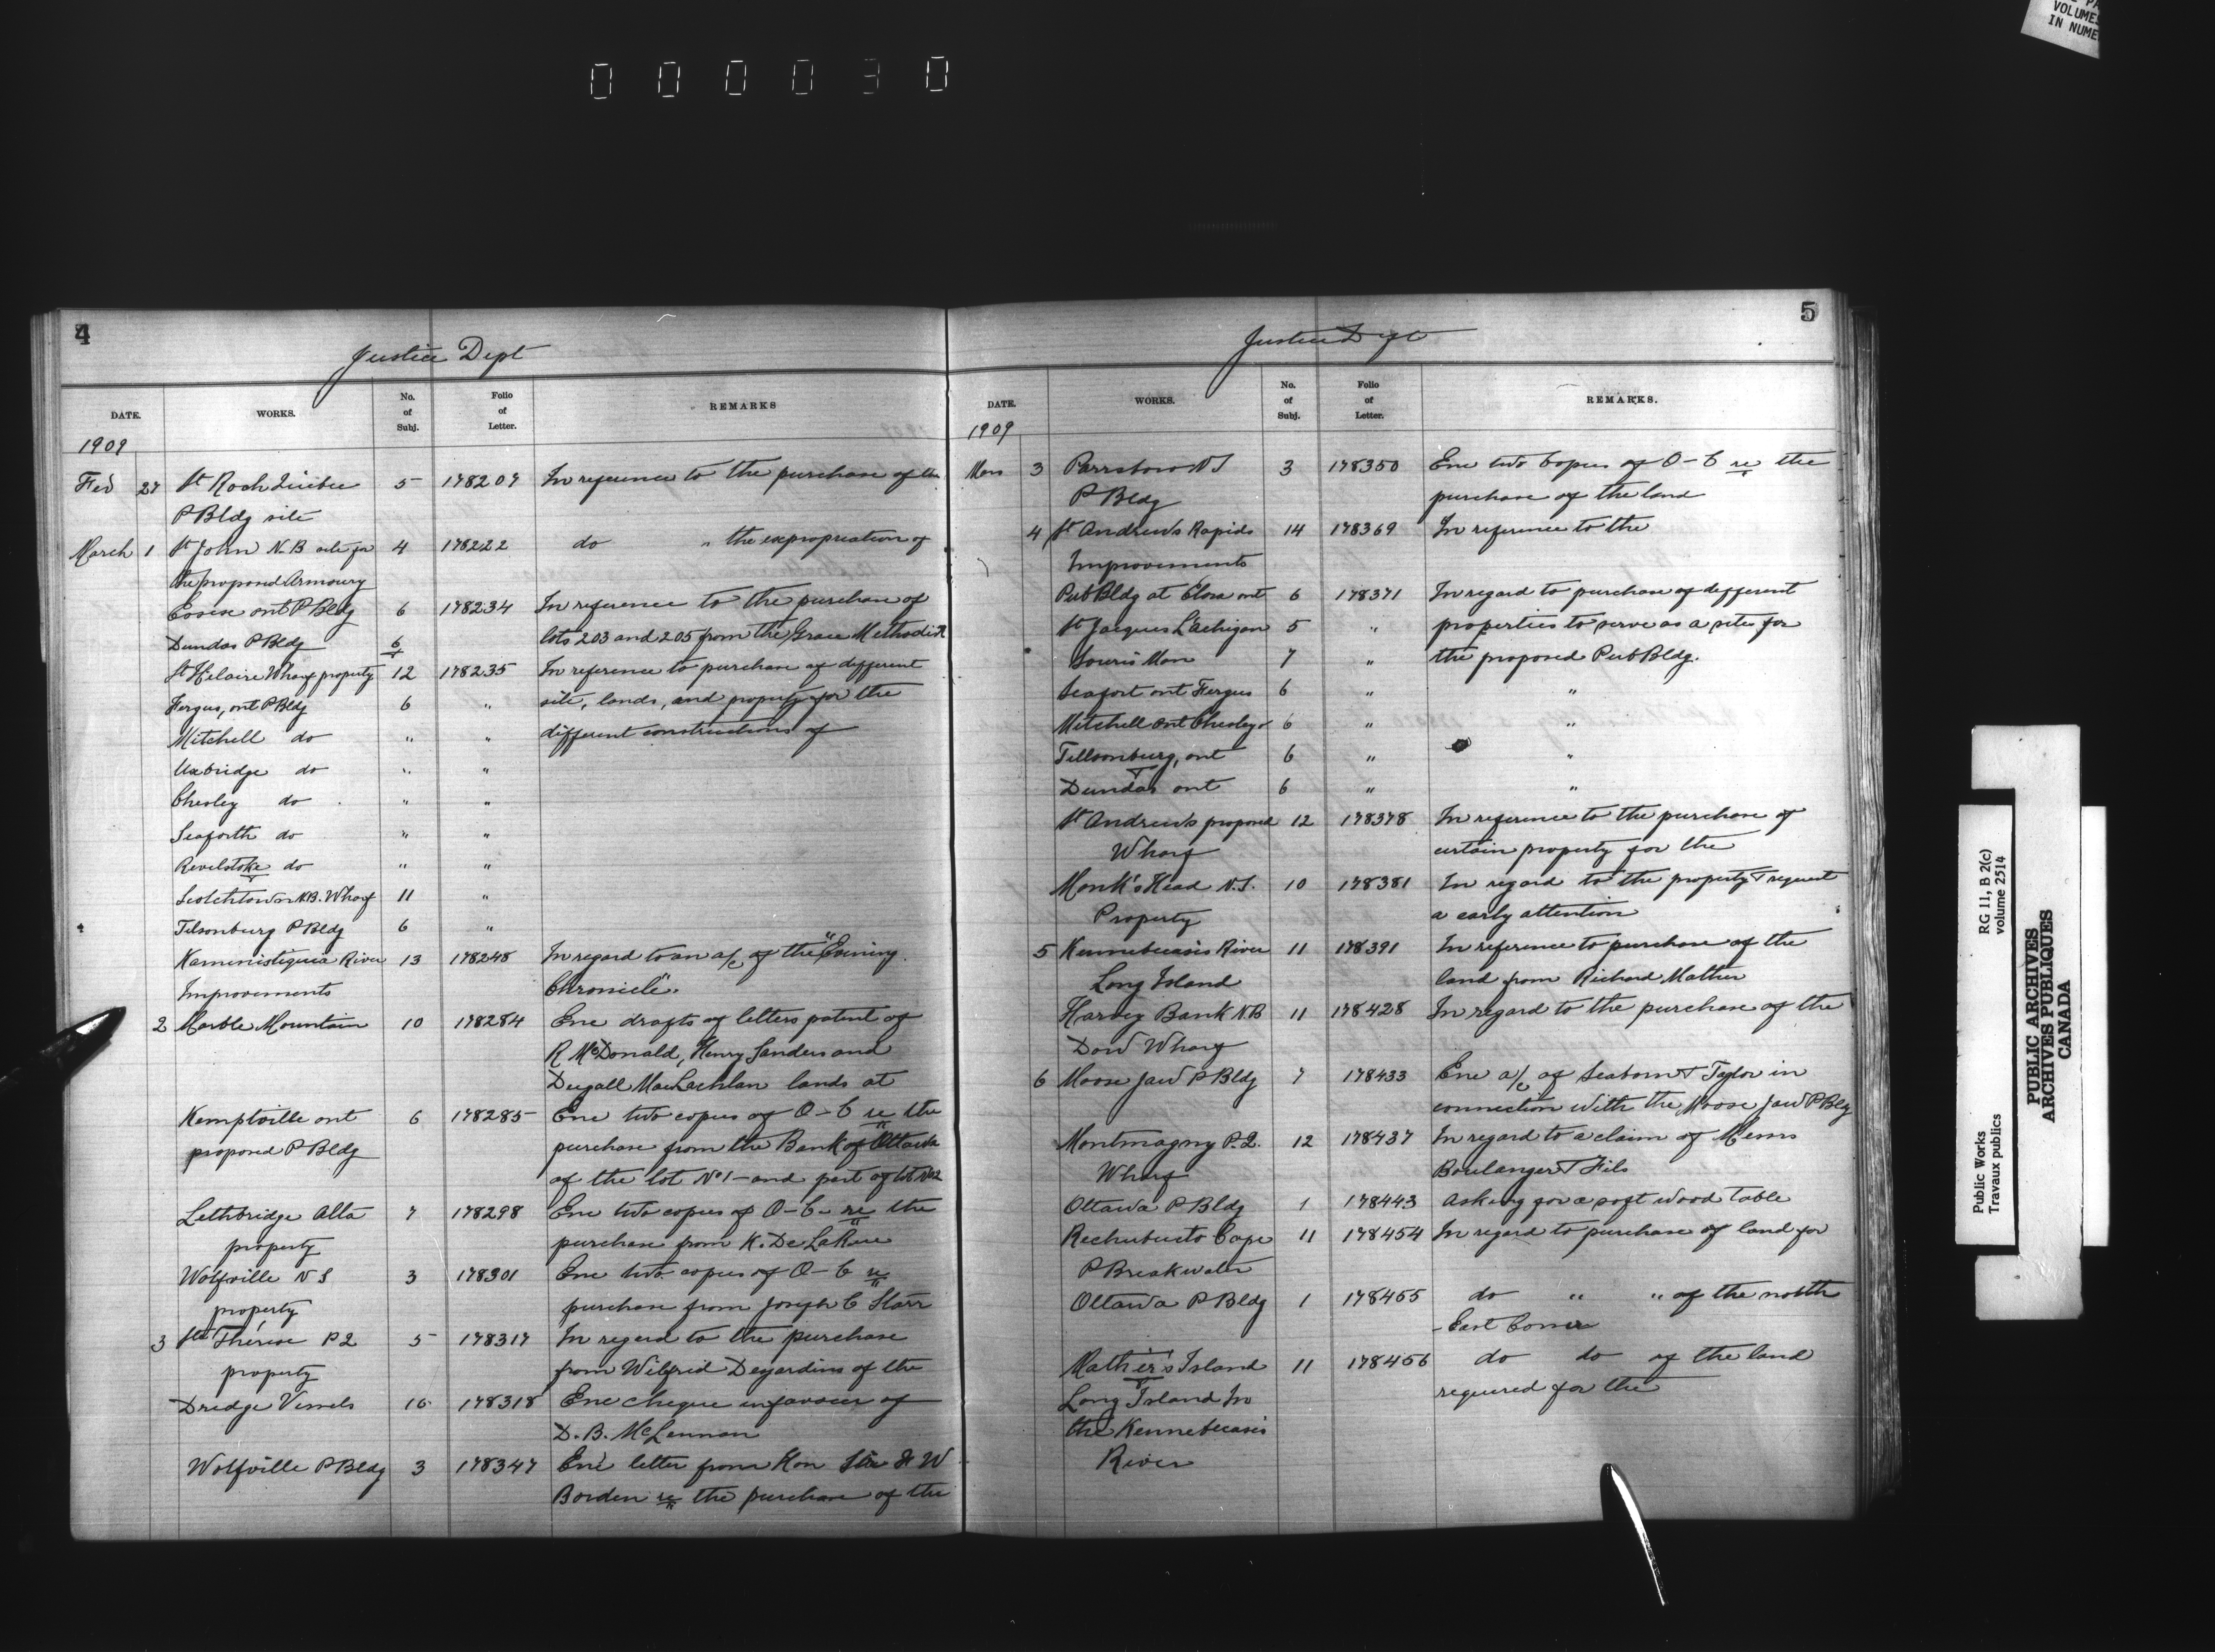 000030
PA
VOLUMES
IN NUME
4
Justice Dept
DATE. WORKS. No. of Subj. Folio of Letter. REMARKS
1909
Feb 27 St Roch Quebec 5 178207 In reference to the purchase of the
P Bldg site
March 1 St John N.B site for 4 178222 do " the expropriation of
the propond Armoury
Essex ont P Bldg 6 178234 In reference to the purchase of
lots 203 and 205 from the Grace Methodist
Dundas P Bldg 6
St Helaire Wharf property 12 178235 In reference to purchase of different
Fergus, ont P Bldg 6 " site, lands, and property for the
Mitchell do " " different constructions of
Uxbridge do " "
Chesley do " "
Seaforth do " "
Revelstoke do " "
Scotchtown N.B. Wharf 11 "
Tilsonburg P Bldg 6 "
Kaministiquia River 13 178248 In regard to an a/c of the "Evining
Improvements Chronicle".
2 Marble Mountain 10 178284 Enc drafts of letters patent of
R McDonald, Henry Sanders and
Dugall MacLachlan lands at
Kemptville ont 6 178285 Enc two copies of O-C re the
propond P Bldg purchase from the Bank of Ottawa
of the lot No 1 - and part of lot No 2
Lethbridge Alta 7 178298 Enc two copies of O-C- re the
property purchase from K. De LaRue
Wolfville N S 3 178301 Enc two copies of O-C re
property purchase from Joseph C Starr
3 Ste Thérèse P2 5 178317 In regard to the purchase
property from Wilfrid Desjardins of the
Dredge Vessels 16 178318 Enc cheque in favour of
D. B. McLennan
Wolfville P Bldg 3 178347 Enc letter from Hon Sir F W
Borden re the purchase of the
5
Justice Dept
DATE. WORKS. No. of Subj. Folio of Letter. REMARKS.
1909
Mars 3 Parrsboro N S 3 178350 Enc two Copies of O-C re the
P Bldg purchase of the land
4 St Andrews Rapids 14 178369 In reference to the
Improvements
Pub Bldg at Elora ont 6 178371 In regard to purchase of different
St Jacques L'achigan 5 " properties to serve as a site for
Souris Man 7 " the proposed Pub Bldg.
Seafort ont Fergus 6 " "
Mitchell Ont Chesley 6 " "
Tillsonburg, ont 6 " "
Dundas ont 6 " "
St Andrews propond 12 178378 In reference to the purchase of
Wharf certain property for the
Monk's Head N.S. 10 178381 In regard to the property & request
Property a early attention
5 Kennebecasis River 11 178391 In reference to purchase of the
Long Island land from Richard Mather
Harvey Bank NB 11 178428 In regard to the purchase of the
Dow Wharf
6 Moose Jaw P Bldg 7 178433 Enc a/c of Seaborn & Taylor in
connection with the Moose Jaw P Bldg
Montmagny P.2. 12 178437 In regard to a claim of Messrs
Wharf Boulanger & Fils
Ottawa P Bldg 1 178443 Asking for a soft wood table
Rechubucto Cape 11 178454 In regard to purchase of land for
P Breakwater
Ottawa P Bldg 1 178455 do " " of the north
- East Corner
Mather's Island 11 178456 do do of the land
Long Island In required for the
the Kennebecasis
River
Public Works
Travaux publics
RG 11, B 2(c)
volume 2514
PUBLIC ARCHIVES
ARCHIVES PUBLIQUES
CANADA